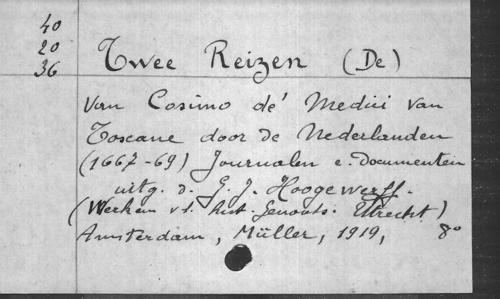 40
20
36
Twee Reizen (De)
van Cosimo de' Medici van
Toscane door de Nederlanden
(1667-69) Journalen e. Documenten
uitg. d. G. J. Hoogewerff.
(Werken v. h. hist. Genoots. Utrecht)
Amsterdam, Müller, 1919, 8°